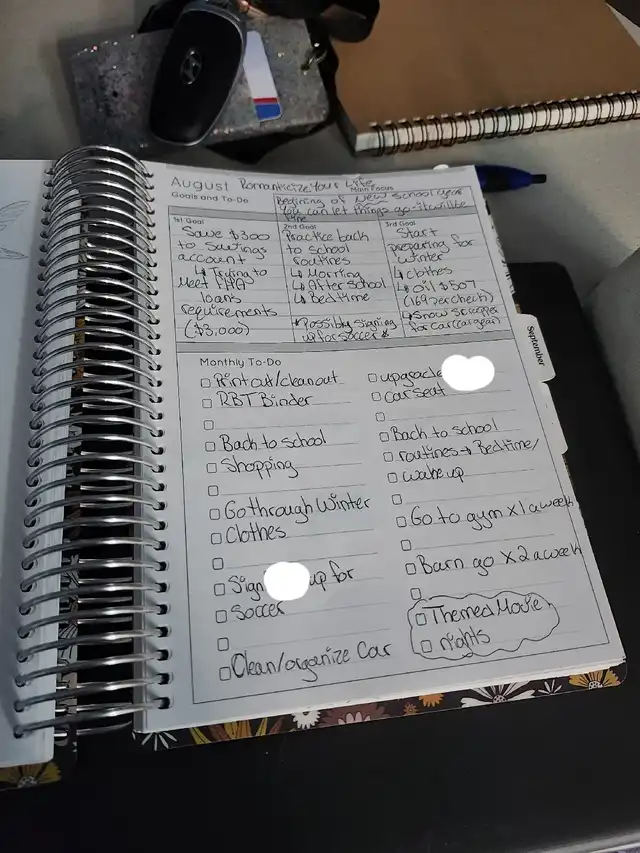 August Romanticize Your Life
Goals and To-Do
Main Focus
Begining of New school year
You can let things go-it will be
fine
1st Goal
Save $300
to savings
account
↳ Trying to
meet FHA
loans
requirements
($3,000)
2nd Goal
Practice back
to school
routines
↳ Morning
↳ After school
↳ Bedtime
*Possibly signing
up for soccer*
3rd Goal
Start
preparing for
winter
↳ clothes
↳ oil $507
(169 per check)
↳ Snow scrapper
for car (car gear)
Monthly To-Do
Print out/clean out
RBT Binder
Back to school
Shopping
Go through Winter
Clothes
Sign up for
Soccer
Clean/organize Car
upgrade
car seat
Back to school
routines → Bedtime/
wake up
Go to gym x1 a week
Barn go x2 a week
Themed Movie
nights
September